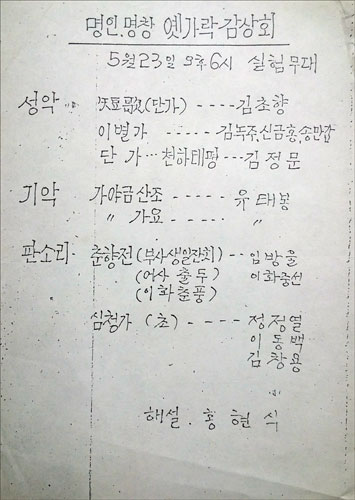 명인.명창 옛가락·감상회
5월23일 오후6시 실험무대
성악 - 短歌(단가) ---- 김초향
이별가 ---- 김녹주,신금홍,송만갑
단가 … 천하태평 --- 김정문
기악 가야금산조 ---- 유태봉
〃 가요 ---- 〃
판소리 · 춘향전 (부사생일잔회) -- 임방울
(어사출두) 이화중선
(이화춘풍)
심청가 (초) ---- 정정열
이동백
김창용
해설 . 홍현식